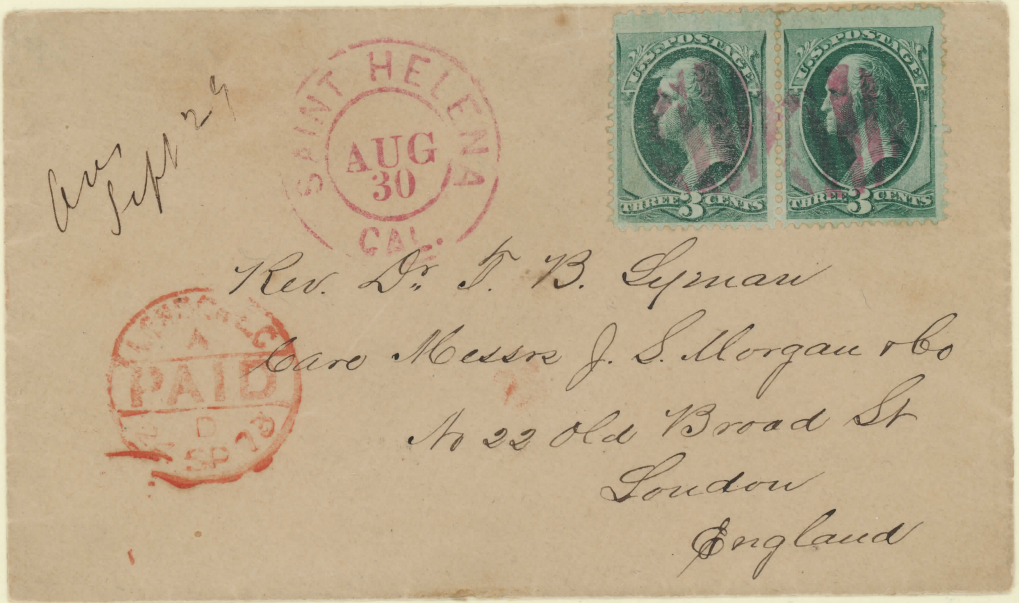 SAINT HELENA
AUG
30
CAL.
U.S. POSTAGE
THREE 3 CENTS
U.S. POSTAGE
THREE 3 CENTS
Ans
Sept 29
Rev. Dr. T. B. Lyman
Care Messrs J. S. Morgan & Co
No 22 Old Broad St
London
England
A
PAID
D
SP